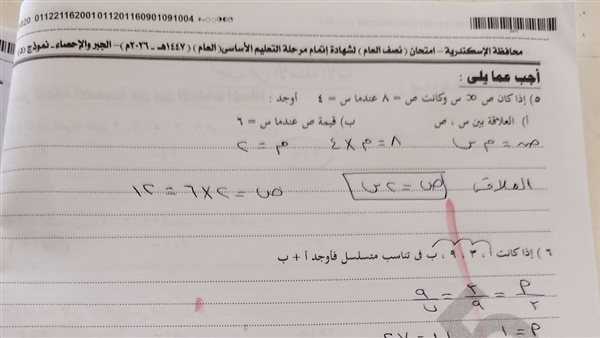 01122116200101120116090109100４
محافظة الإسكندرية – امتحان ( نصف العام ) لشهادة إتمام مرحلة التعليم الأساسى ( العام ) ١٤٤٧هـ - ٢٠٢٦م – الجبر والإحصاء – نموذج (٥)
أجب عما يلى :
٥ ) إذا كان ص ∝ س وكانت ص = ٨ عندما س = ٤ أوجد :
أ ) العلاقة بين س ، ص ب ) قيمة ص عندما س = ٦
ص = م س ٨ = م × ٤ م = ٢
العلاقة ص = ٢ س ص = ٢ × ٦ = ١٢
٦ ) إذا كانت أ ، ٣ ، ٩ ، ب فى تناسب متسلسل فأوجد أ + ب
أ/٣ = ٣/٩ = ٩/ب
أ = ١